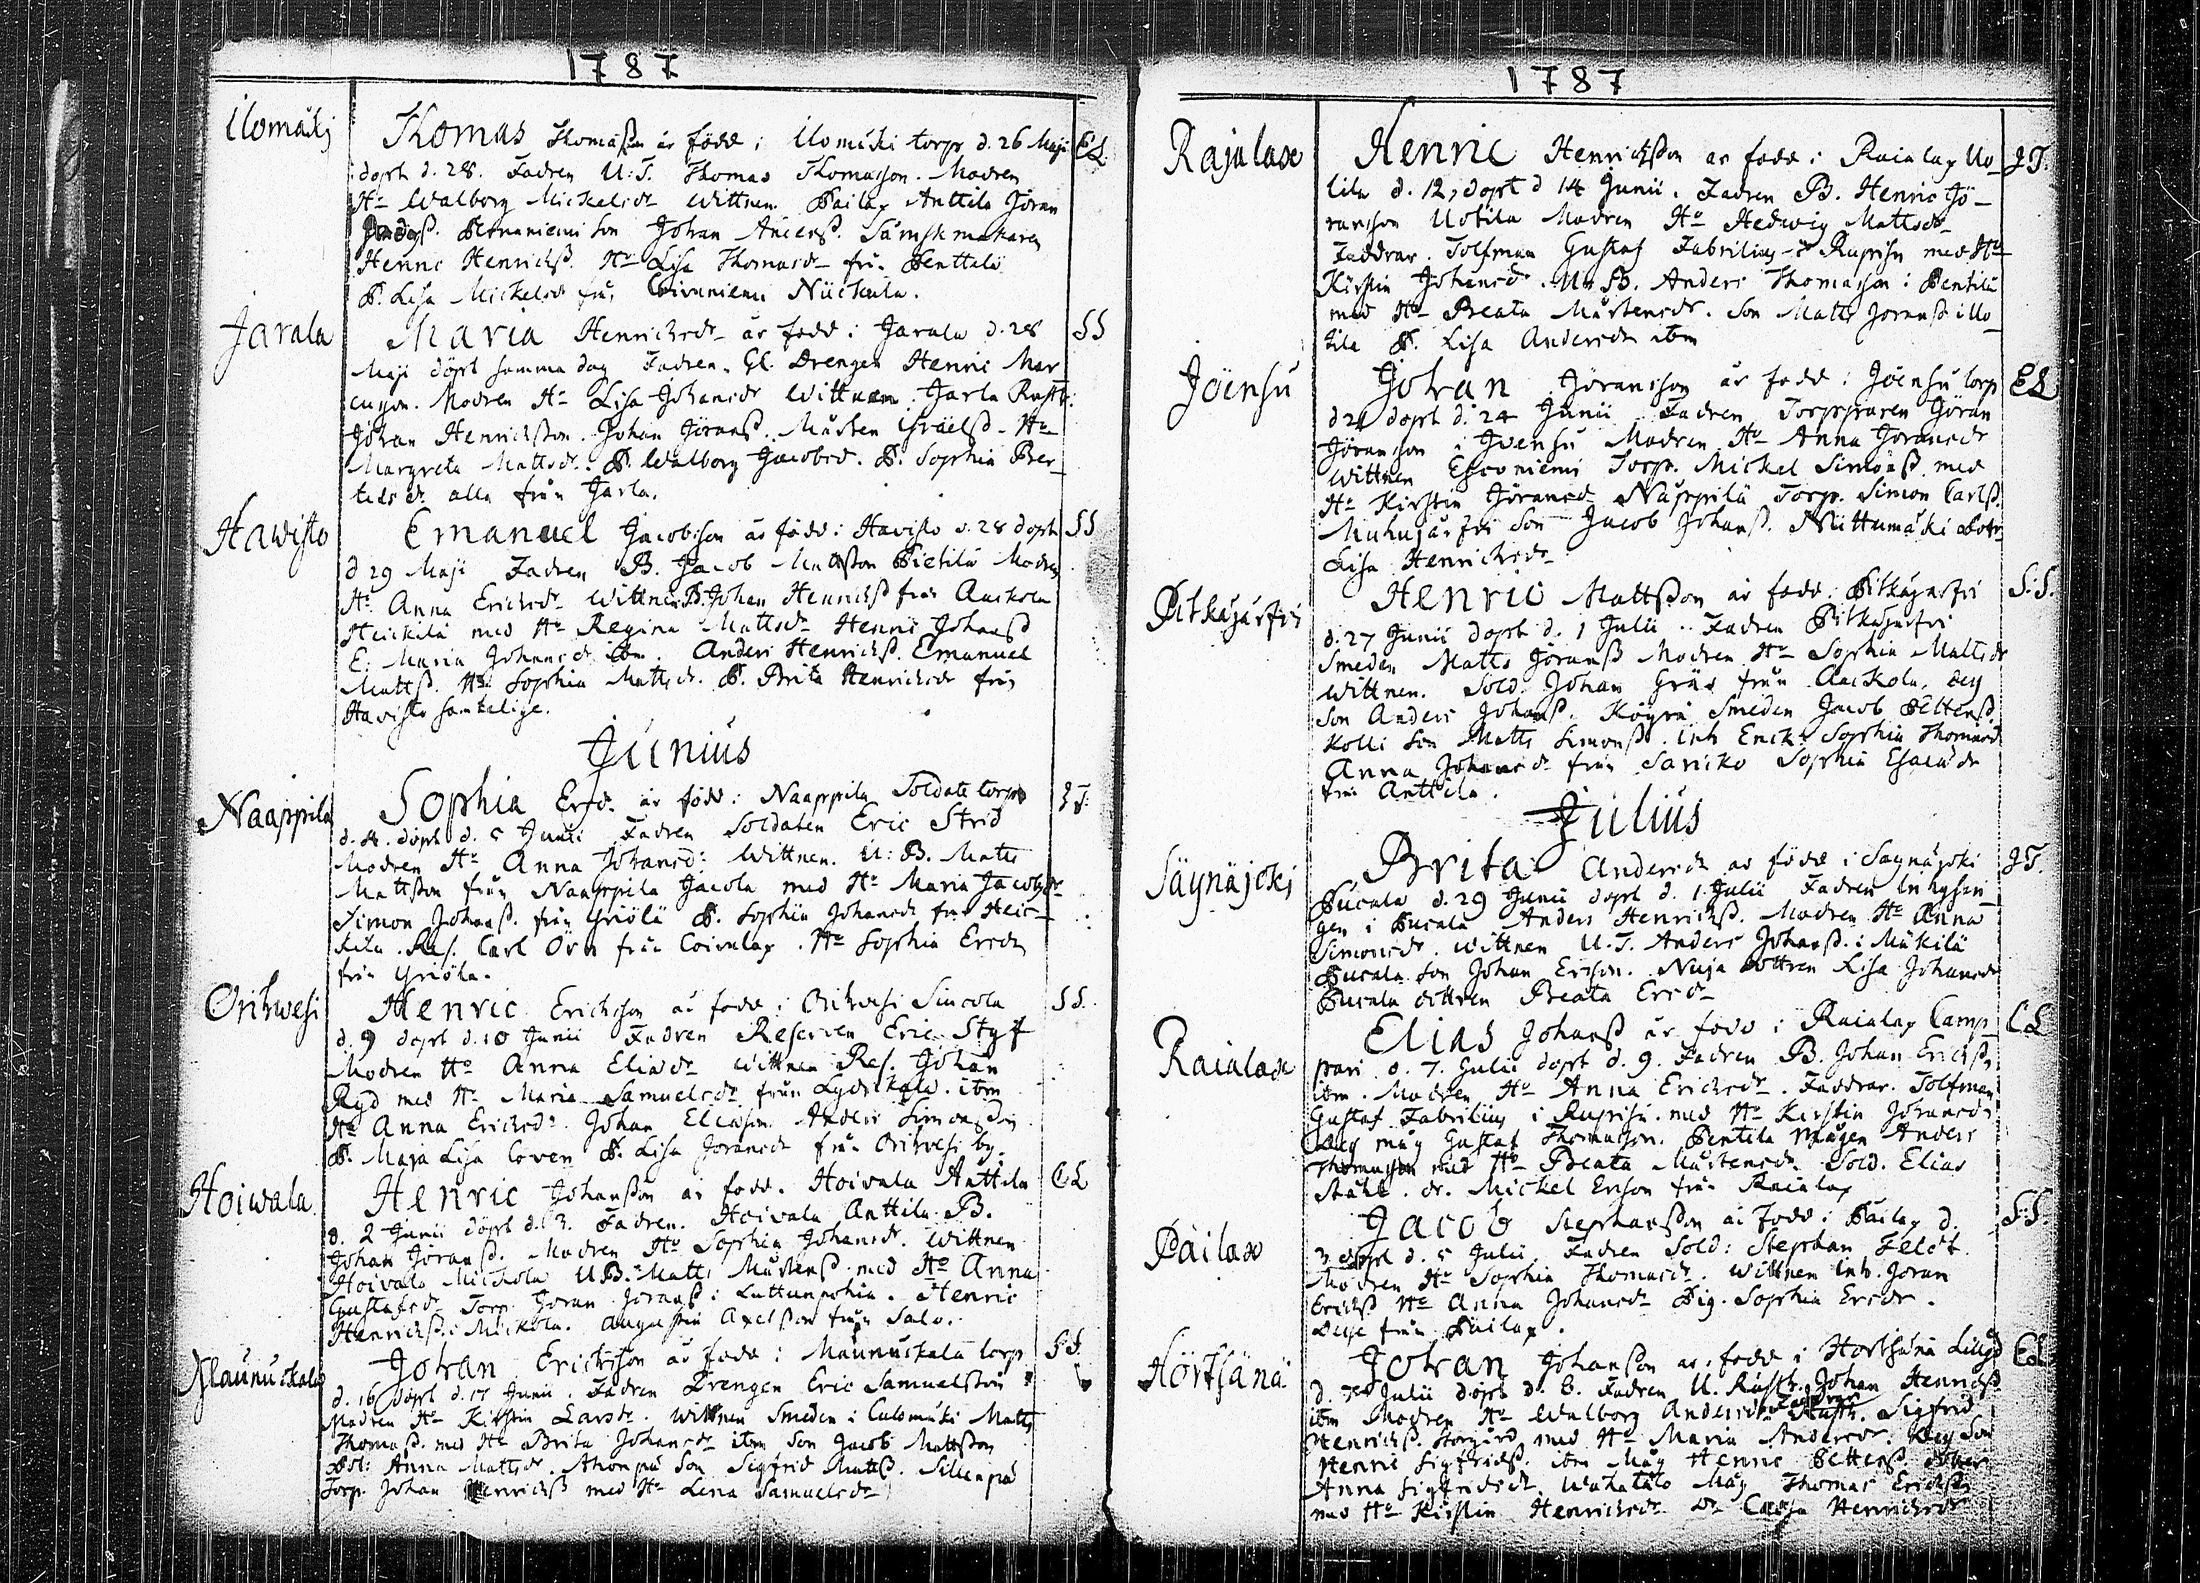 1787
Ilomäki
Thomas Thomasson är född i Ilomäki torp d. 26 Maji CL.
döpt d. 28. Fadren U: T. Thomas Thomasson. Modren
Ho Walborg Mickelsdr Wittnen Pailax Anttila Jöran
son Johan Anderss.
Henric Henrichss. Ho Lisa Thomasdr från Penttilä
P. Lisa Mickelsdr från
Jarala
Maria Henrichsdr är född i Jarala d. 28 SS
Maji döpt samma dag Fadren. Gl. Drengen Henric Mar
cusson. Modren Ho Lisa Johansdr Wittnen Jarla Rustr.
Johan Henrichsson. Johan Jöranss. Mårten Israelss. Ho
Margreta Mattsdr. P. Walborg Jacobsd. P. Sophia Ber_
telsdr alla från Jarla.
Hawisto
Emanuel Jacobsson är född i Havisto d. 28 döpt SS
d 29 Maji Fadren B. Jacob Mattsson Pietilä Modren
Ho Anna Erichsdr Wittnen B. Johan Henrichss från Auskola
Heickilä med Ho Regina Mattsdr Henric Johanss
E. Maria Johansdr ibm. Anders Henrichss. Emanuel
Mattss. Ho Sophia Mattsdr. P. Brita Henrichsdr från
Havisto samtelige.
Junius
Naappila
Sophia Ersdr. är född i Naappila Soldate torp JT.
d. 4. döpt d. 5 Junii Fadren Soldaten Eric Strid
Modren Ho Anna Johansd: Wittnen. U: B. Matts
Mattsson från Naappila Jacola med Ho Maria Jacobsdr
Simon Johanss. från Yriölä P. Sophia Johansdr från Heic_
kila. Res. Carl Örn från Coivulax. Ho Sophia Ersdr
från Yriöla.
Orihwesi
Henric Erichsson är född i Orihvesi Sincola SS.
d. 9 döpt d. 10 Junii Fadren Reserven Eric Styf
Modren Ho Anna Eliaedr Wittnen Res. Johan
Ryd med Ho Maria Samuelsdr från Lydickala. ibm
Ho Anna Erichsdr. Johan Eliasson. Anders Simonsson
P. Maja Lisa Coven P. Lisa Joransdr från Orihvesi by.
Hoiwala
Henric Johansson är född. Hoivala Anttila CL
d. 2 Junii döpt d. 3. Fadren. Hoivala Anttila B.
Johan Jöranss. Modren Ho Sophia Johansdr. Wittnen
Hoivala Mickola U B. Matts Mårtenss. med Ho Anna
Gustafsdr Torp. Joran Joranss i Luttunpohia. Henric
Henrichss. i Mickola. Augustin Axelsson från Salo.
Maunuckala
Johan Ericksson är född i Maunuckala torp SS.
d. 16 döpt d. 17 Junii. Fadren Drengen Eric Samuelsson
Modren Ho Kirstin Larsdr. Wittnen Smeden i Culomäki Matts
Thomass. med Ho Brita Johansdr ibm Son Jacob Mattsson
Dot: Anna Mattsdr. Ahonpä Son Sigfrid Mattss. Sillenpä
Torp. Johan Henrichss med Ho Lena Samuelsdr
1787
Rajalax
Henric Henrichsson är född i Raialax Uo_ JT.
tila d. 12, döpt d 14 Junii. Fadren B. Henric Jö_
ransson Uotila Modren Ho Hedwig Mattsdr
Faddrar. Tolfman Gustaf Fabrilius i Rupisu med Ho
Kirstin Johansdr. U: B. Anders Thomasson i Pentilä
med Ho Beata Mårtensdr. Son Matts Joranss i Uo_
tila P. Lisa Andersdr ibm
Joensu
Johan Joransson är född i Joensu torp CL
d 21 döpt d. 24 Junii Fadren Torpparen Göran
Jöransson i Joensu Modren Ho Anna Joransdr
Wittnen Torp. Mickel Simonss. med
Ho Kirstin Jöransdr Näppilä Torp. Simon Carlss.
Muhujärfvi Son Jacob Johanss. Niittumäki Dotr
Lisa Henrichsdr
Pitkajärfvi
Henric Mattsson är född i Pitkäjärfvi S.S.
d. 27 Junii döpt d. 1 Julii. Fadren Pitkäjärfvi
Smeden Matts Joranss Modren Ho Sophia Mattsdr
Wittnen. Sold. Johan Grås från Auskola. dess
Son Anders Johanss. Köyrä Smeden Jacob Pettenss.
Kolli Son Matts Simonss. Inh Enck: Sophia Thomasd
Anna Johansdr från Saniko Sophia Esaiædr
från Anttila.
Julius
Säynäjoki
Brita Andersdr är född i Saynäjoki JT.
Pucala d. 29 Junii döpt d. 1 Julii Fadren Inhysin_
gen i Pucala Anders Henrichss. Modren Ho Anna
Simonsdr. Wittnen U. T. Anders Johanss. i Mäkilä
Pucala son Johan Ersson. Nuja dottren Lisa Johansdr
Pucala dottren Beata Ersdr
Raialax
Elias Johanss är född i Raialax Camp_ CL
pari d. 7. Julii döpt d. 9. Fadren B. Johan Erichss.
ibm. Modren Ho Anna Erichsdr. Faddrar. Tolfman
Gustaf Fabrilius i Rupisu med Ho Kirstin Johansdr
dess måg Gustaf Thomasson. Pentila Mågen Anders
Thomasson med Ho Beata Mårtensdr. Sold. Elias
Ståhl. dr. Mickel Ersson från Raialax
Pailax
Jacob Stephansson är född i Pailax d. S:S.
3 döpt d. 5 Julii. Fadren Sold: Stephan Feldt.
Modren Ho Sophia Thomasdr. Wittnen Inh. Joran
Erichss Ho Anna Johansdr Pig. Sophia Ersdr.
desse från Pailax.
Hörtsänä
Johan Johansson är född i Hortsänä CL
d. Julii döpt d. 8. Fadren U. Rustr. Johan Henrichss
ibm Modren Ho Walborg Andersdr Faddrar Rustr. Sigfrid
Henrichss. Storgård med Ho Maria Andersdr. dess Son
Henric Sigfridss. ibm Måg Henric Pettenss. Dotter
Anna Sigfridsdr. Wahatalo Måg Thomas Erichss.
med Ho Kirstin Henrichsdr Dr Caisa Henrichsdr